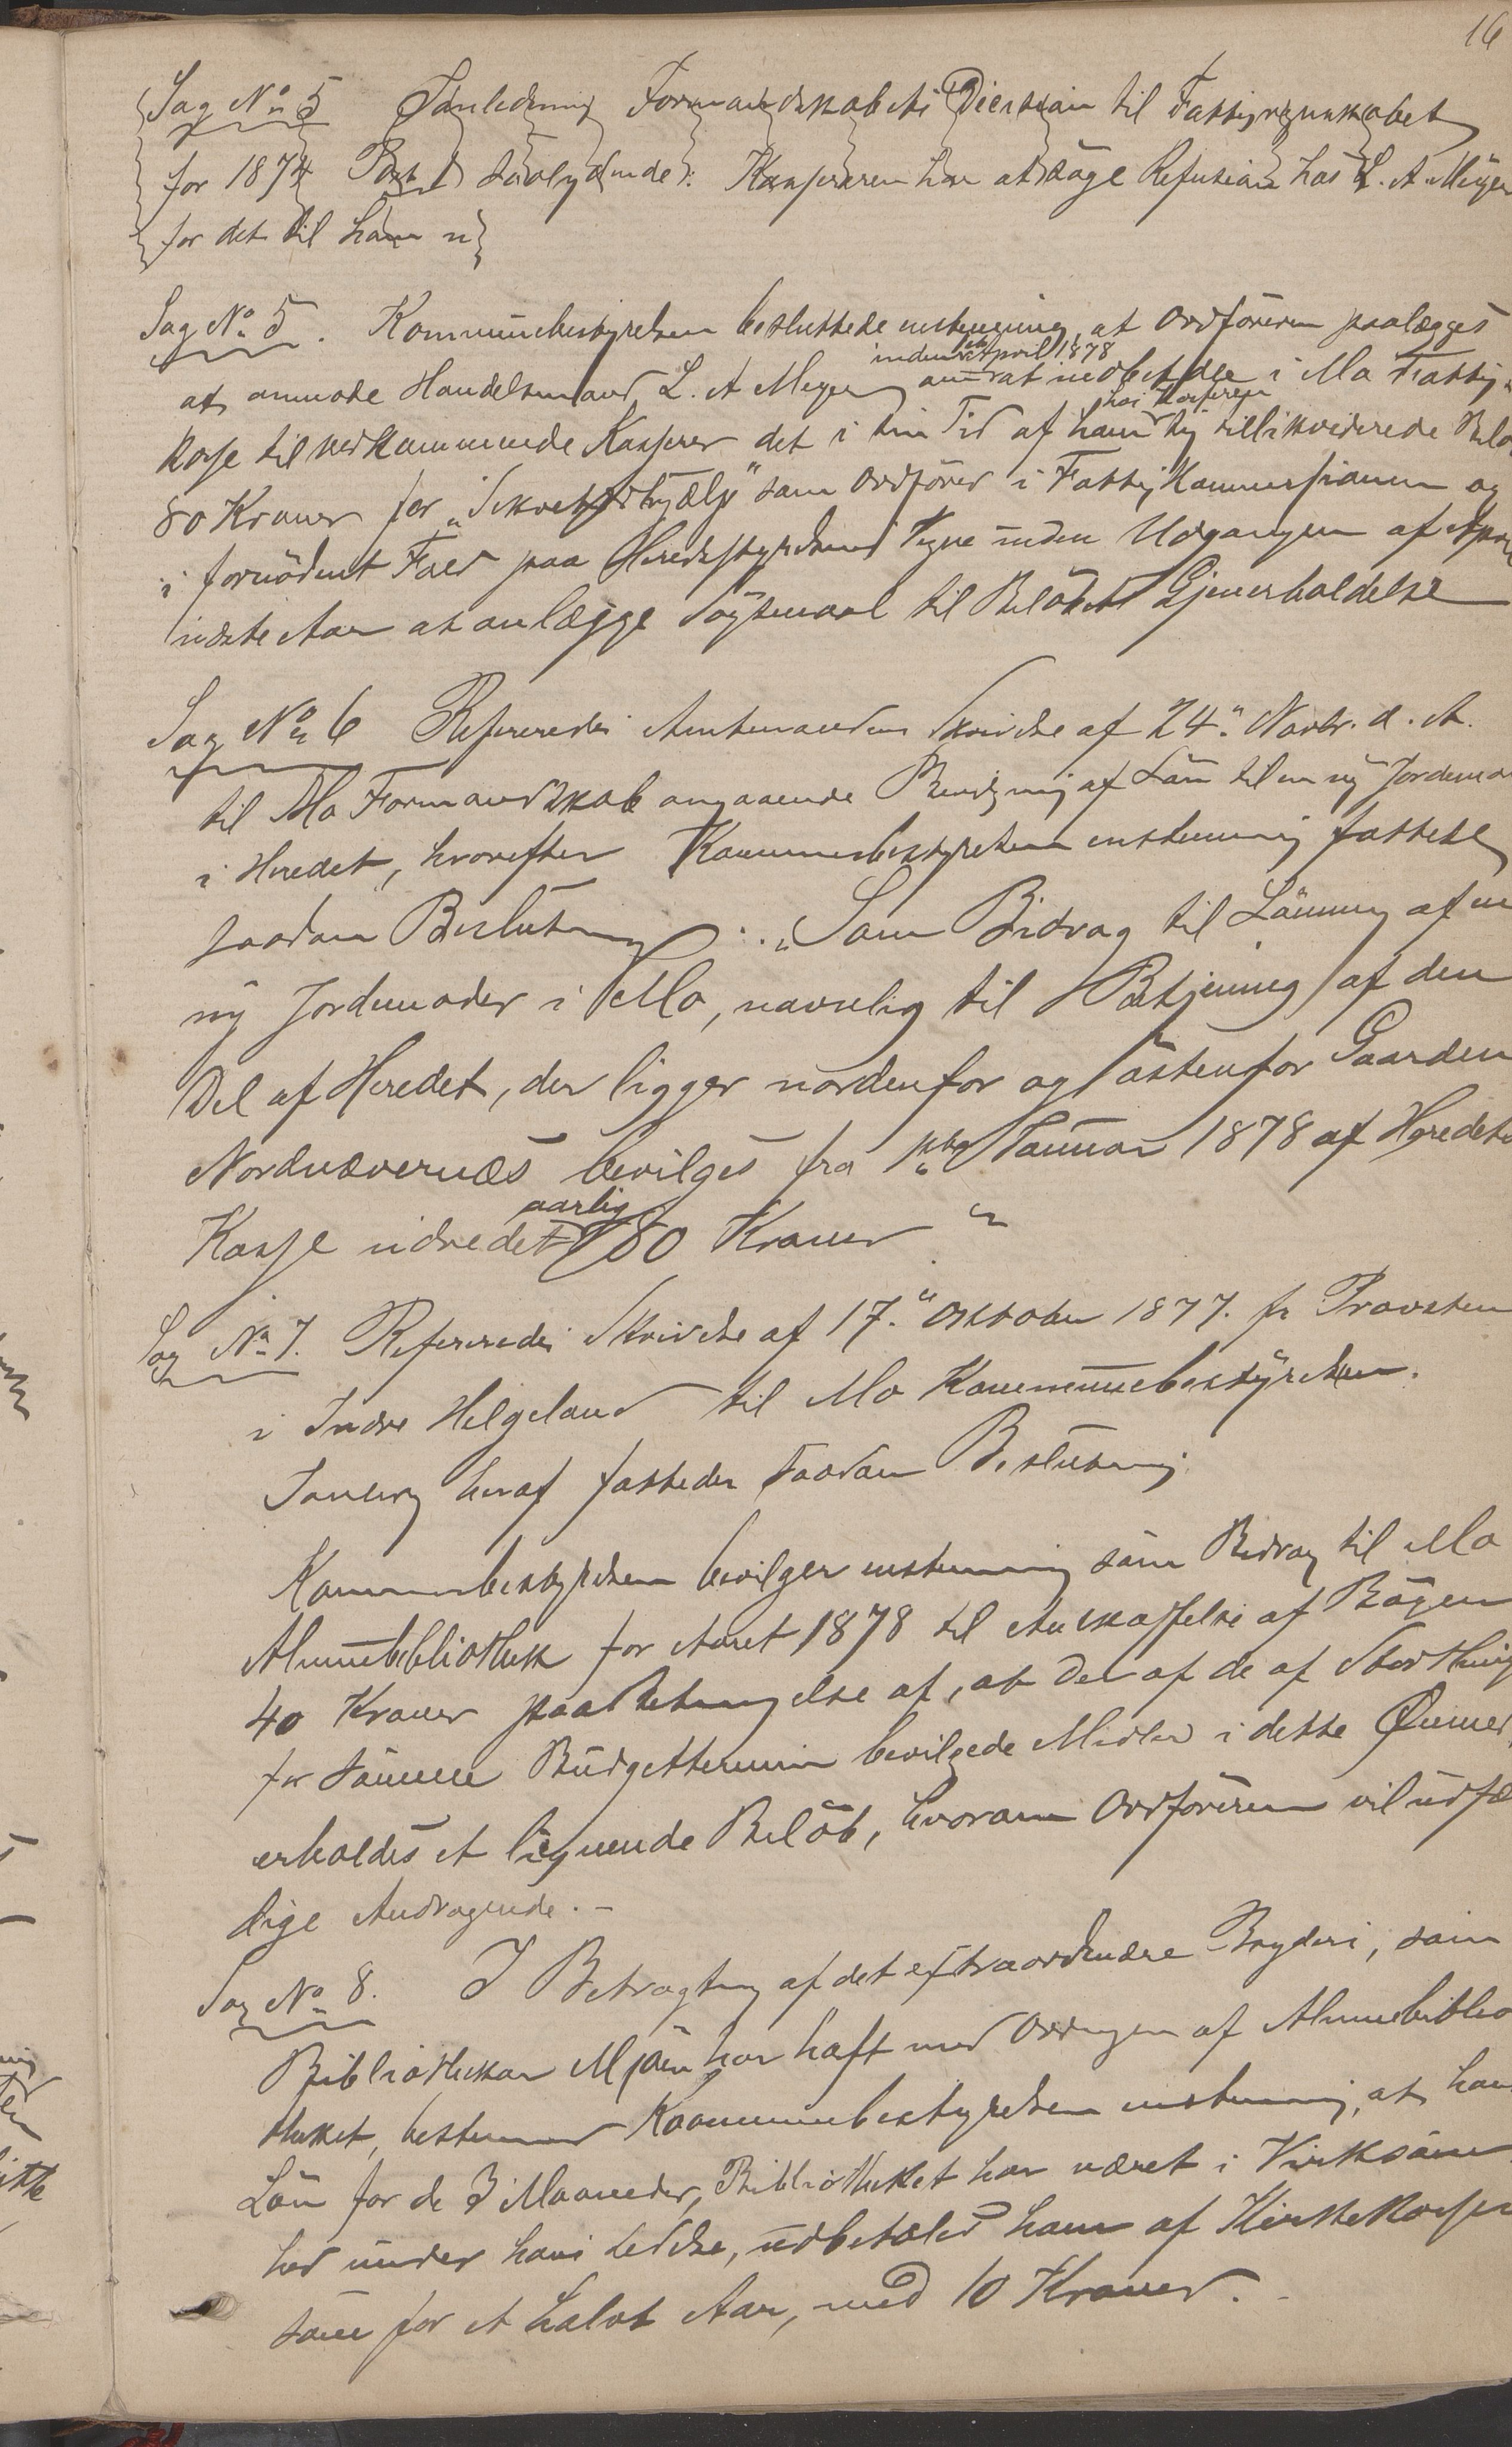 16
Sag No 5 I Anledning Formandskabets Decision til Fattigregnskabet
for 1874 Post 1 saalydende: Kasseren har at søge Refusion hos L. A. Meyer
for det til ham u
Sag No 5. Kommunebestyrelsen besluttede enstemmig, at Ordføreren paalægges
inden 1ste April 1878
at anmode Handelsmand L. A Meyer om at indbetale i Mo Fattig-
hos Kasseren
kasse til vedkommende Kasserer det i sin Tid af ham sig tillikviderede Belø
80 Kroner for "Sekretærhjælp" som Ordfører i Fattigkommissionen og
i fornødent Fald paa Heredsstyrelsens Vegne inden Udgangen af April
næste Aar at anlægge Søgsmaal til Beløbets Gjenerholdelse
Sag No 6 Refereredes Amtmandens Skrivelse af 24. Novbr. d. A.
til Mo Formandskab angaaende Bevilgning af Løn til en ny Jordemo
i Heredet, hvorefter Kommunebestyrelsen enstemmig fattede
saadan Beslutning: "Som Bidrag til Lønning af en
ny Jordemoder i Mo, navnlig til Betjening af den
Del af Heredet, der ligger nordenfor og østenfor Gaarden
Nordnævernæs bevilges fra 1ste Januar 1878 af Heredets
aarlig
Kasse udredet 80 Kroner"
Sag No 7. Refereredes Skrivelse af 17. Oktober 1877. fr Provsten
i Indre Helgeland til Mo Kommunebestyrelsen.
I Anledning heraf fattedes saadan Beslutning
Kommunebestyrelsen bevilger enstemmig som Bidrag til Mo
Almuebibliothek for Aaret 1878 til Anskaffelse af Bøger
40 Kroner paa Betingelse af, at der af de af Storthing
for samme Budgettermin bevilgede Midler i dette Øiemed
erholdes et lignende Beløb, hvorom Ordføreren vil udfæ
dige Andragende. -
Sag No 8. I Betragtning af det extraordinære Bryderi, som
Bibliothekar Mjøen har haft med Ordningen af Almuebiblio
theket, bestemmer Kommunebestyrelsen enstemmig, at han
Løn for de 3 Maaneder, Bibliotheket har været i Virksom
hed under hans Ledelse, udbetales ham af Kirkekassen
som for et halvt Aar, med 10 Kroner.